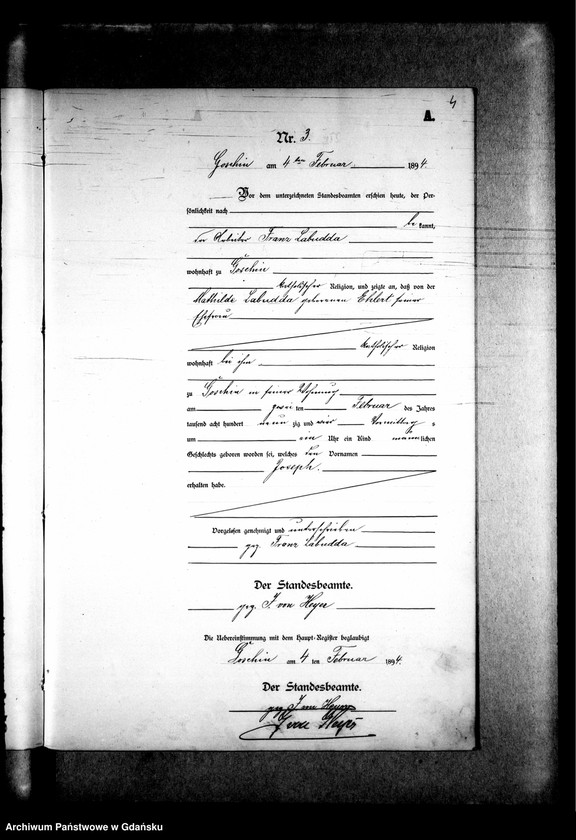 4
A.
Nr. 3.
Goschin am 4ten Februar 1894.
Vor dem unterzeichneten Standesbeamten erschien heute, der Per-
sönlichkeit nach
be kannt,
der Arbeiter Franz Labudda
wohnhaft zu Goschin
katholischer Religion, und zeigte an, daß von der
Mathilde Labudda geborenen Ehlert seiner
Ehefrau
katholischer Religion
wohnhaft bei ihm
zu Goschin in seiner Wohnung
am zwei ten Februar des Jahres
tausend acht hundert neun zig und vier Vormittag s
um ein Uhr ein Kind männlichen
Geschlechts geboren worden sei, welches den Vornamen
Joseph.
erhalten habe.
Vorgelesen genehmigt und unterschrieben
gez Franz Labudda
Der Standesbeamte.
gez. J. von Heyer
Die Uebereinstimmung mit dem Haupt-Register beglaubigt
Goschin am 4 ten Februar 1894.
Der Standesbeamte.
gez J von Heyer
J von Heyer
Archiwum Państwowe w Gdańsku